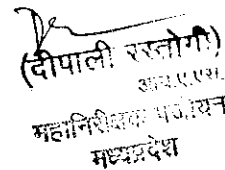 (दीपाली रस्तोगी)
आय.ए.एस.
महानिरीक्षक पंजीयन
मध्यप्रदेश